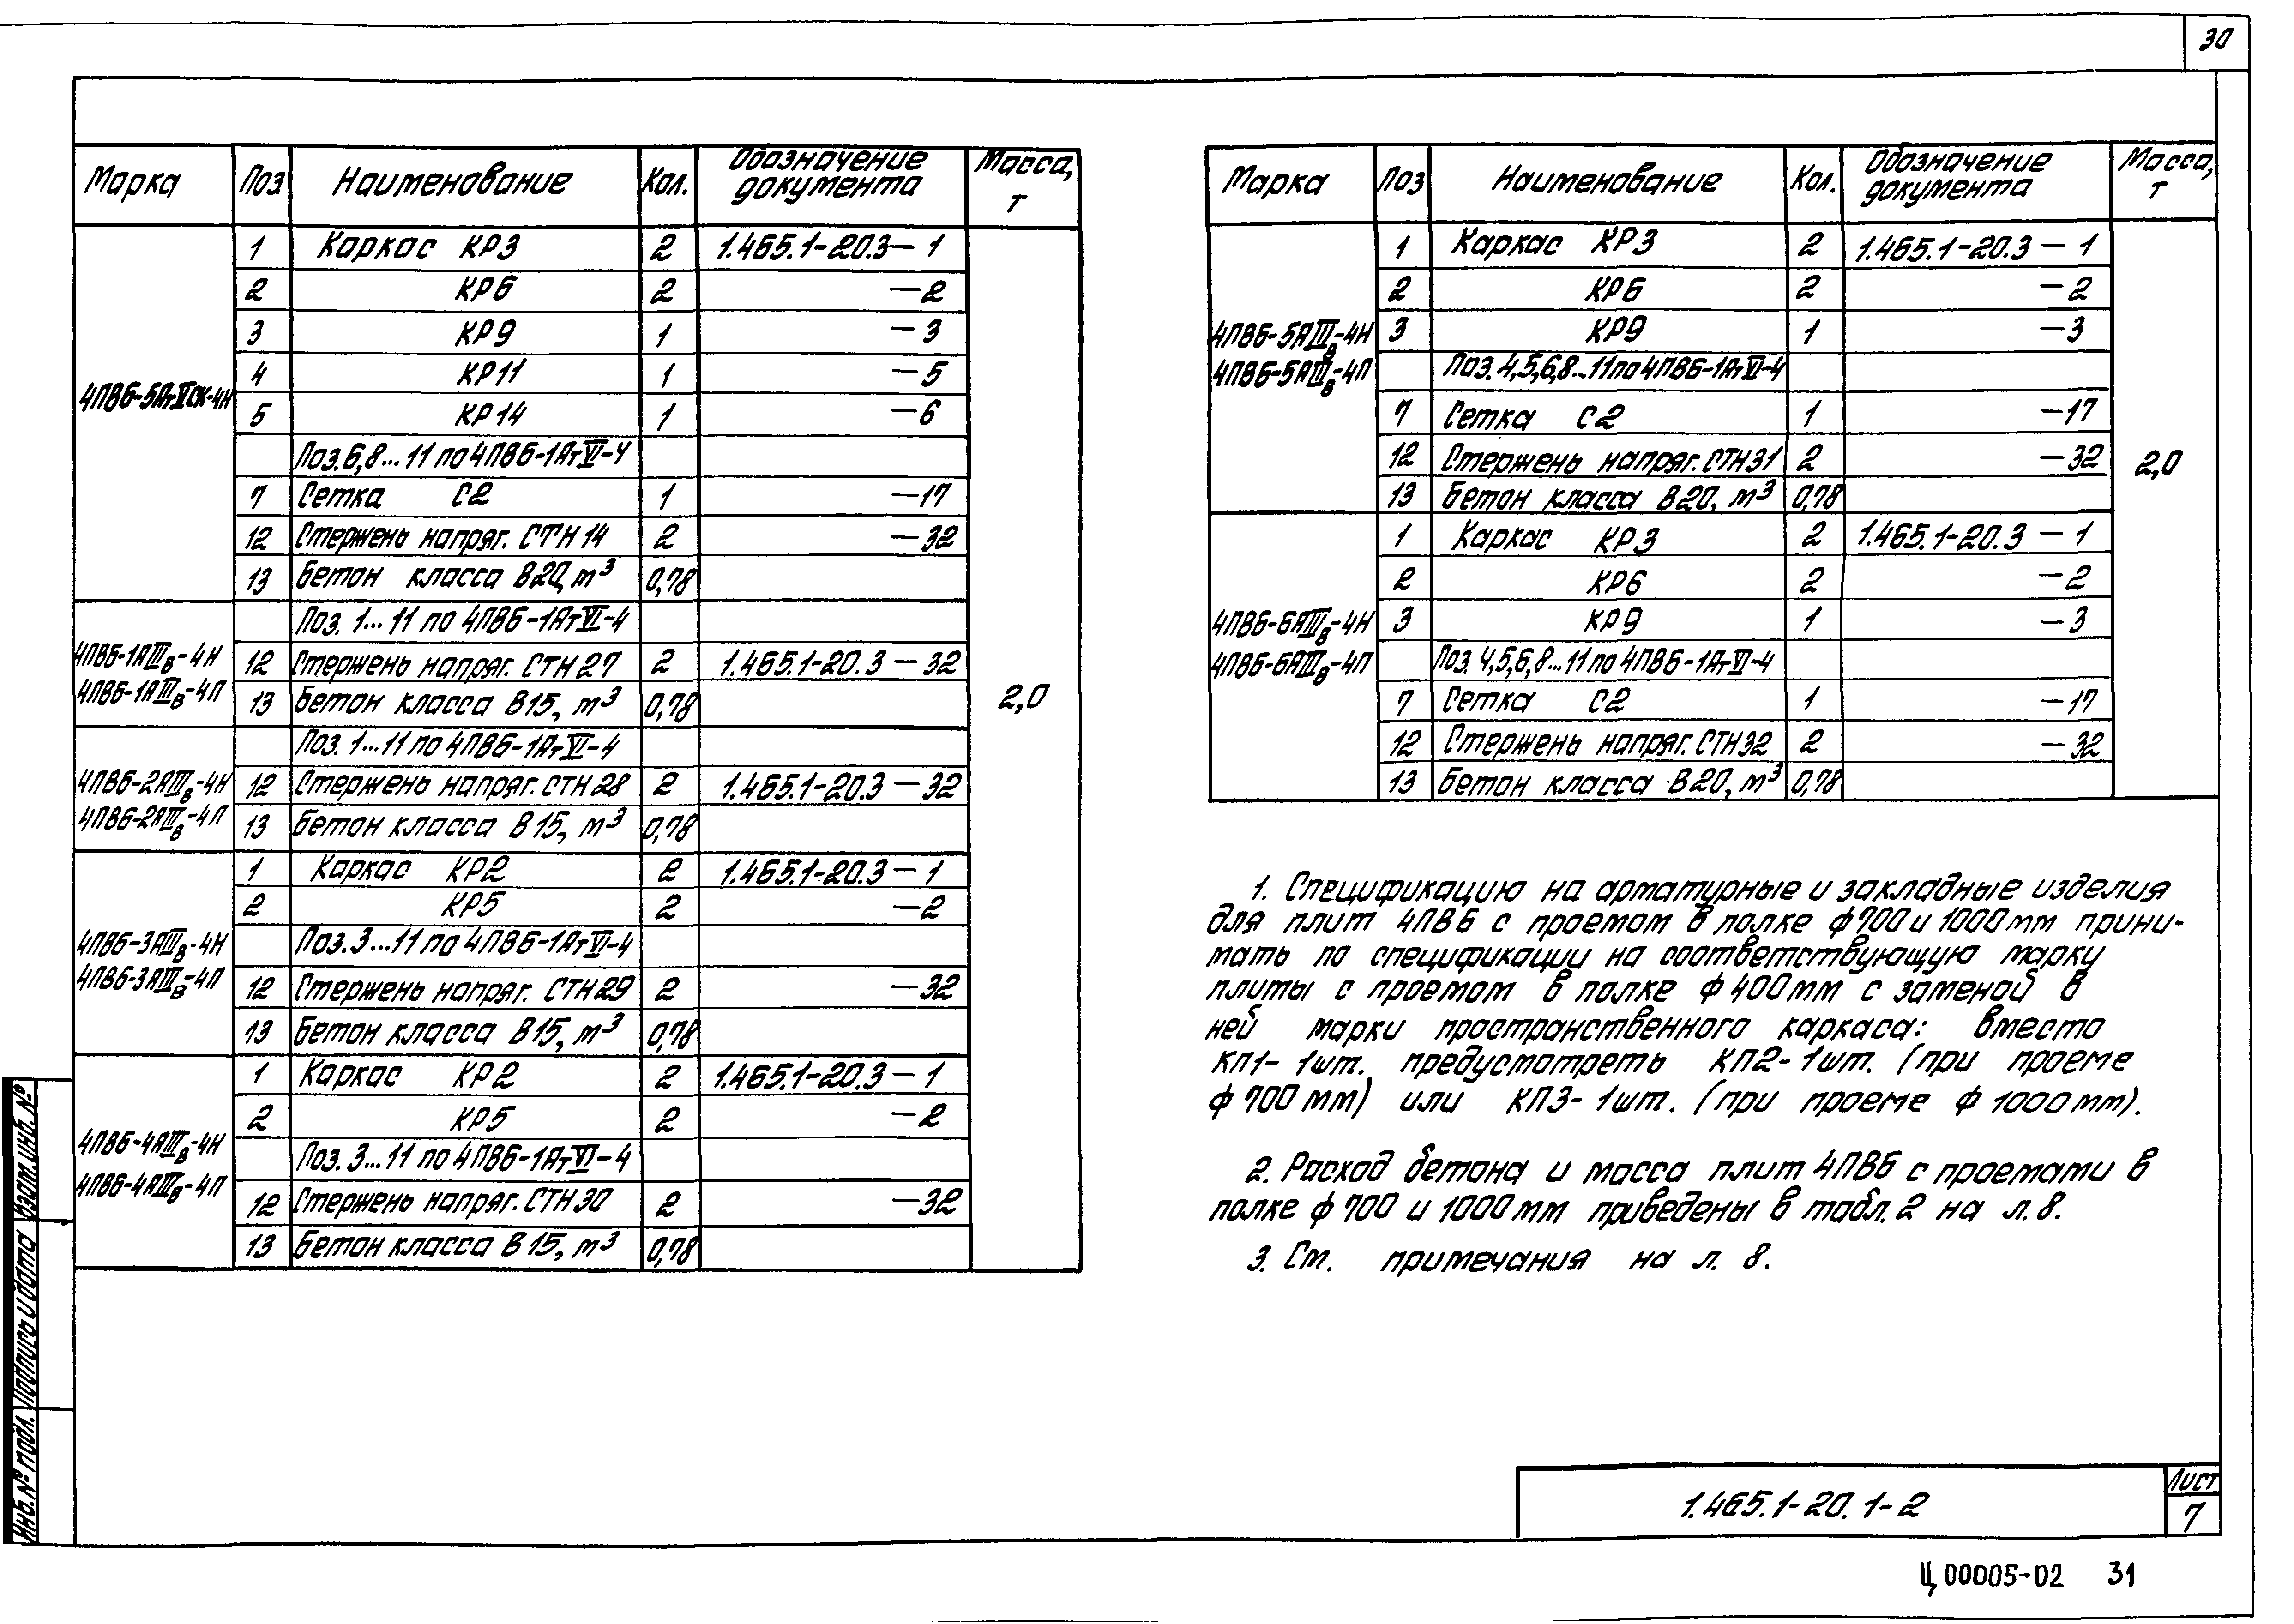 30
Марка Поз Наименование Кол. Обозначение документа Масса, т
4ПВ6-5АтVСК-4Н
1 Каркас КР3 2 1.465.1-20.3-1
2 КР6 2 -2
3 КР9 1 -3
4 КР11 1 -5
5 КР14 1 -6
Поз.6,8...11 по 4ПВ6-1АтVI-4
7 Сетка С2 1 -17
12 Стержень напряг. СТН14 2 -32
13 Бетон класса В20, м³ 0,78
4ПВ6-1АIIIв-4Н
4ПВ6-1АIIIв-4П
Поз. 1...11 по 4ПВ6-1АтVI-4
12 Стержень напряг. СТН27 2 1.465.1-20.3-32
13 Бетон класса В15, м³ 0,78
2,0
4ПВ6-2АIIIв-4Н
4ПВ6-2АIIIв-4П
Поз. 1...11 по 4ПВ6-1АтVI-4
12 Стержень напряг. СТН28 2 1.465.1-20.3-32
13 Бетон класса В15, м³ 0,78
4ПВ6-3АIIIв-4Н
4ПВ6-3АIIIв-4П
1 Каркас КР2 2 1.465.1-20.3-1
2 КР5 2 -2
Поз. 3...11 по 4ПВ6-1АтVI-4
12 Стержень напряг. СТН29 2 -32
13 Бетон класса В15, м³ 0,78
4ПВ6-4АIIIв-4Н
4ПВ6-4АIIIв-4П
1 Каркас КР2 2 1.465.1-20.3-1
2 КР5 2 -2
Поз. 3...11 по 4ПВ6-1АтVI-4
12 Стержень напряг. СТН30 2 -32
13 Бетон класса В15, м³ 0,78
Марка Поз Наименование Кол. Обозначение документа Масса, т
4ПВ6-5АIIIв-4Н
4ПВ6-5АIIIв-4П
1 Каркас КР3 2 1.465.1-20.3-1
2 КР6 2 -2
3 КР9 1 -3
Поз. 4,5,6,8...11 по 4ПВ6-1АтVI-4
7 Сетка С2 1 -17
12 Стержень напряг. СТН31 2 -32
13 Бетон класса В20, м³ 0,78
2,0
4ПВ6-6АIIIв-4Н
4ПВ6-6АIIIв-4П
1 Каркас КР3 2 1.465.1-20.3-1
2 КР6 2 -2
3 КР9 1 -3
Поз. 4,5,6,8...11 по 4ПВ6-1АтVI-4
7 Сетка С2 1 -17
12 Стержень напряг. СТН32 2 -32
13 Бетон класса В20, м³ 0,78
1. Спецификацию на арматурные и закладные изделия
для плит 4ПВ6 с проемом в полке ф700 и 1000мм прини-
мать по спецификации на соответствующую марку
плиты с проемом в полке ф400мм с заменой в
ней марки пространственного каркаса: вместо
КП1-1шт. предусмотреть КП2-1шт. (при проеме
ф700мм) или КП3-1шт. (при проеме ф1000мм).
2. Расход бетона и масса плит 4ПВ6 с проемами в
полке ф700 и 1000мм приведены в табл.2 на л.8.
3. См. примечания на л. 8.
Инв.№ подл. Подпись и дата Взам.инв.№
1.465.1-20.1-2
Лист
7
Ц00005-02 31